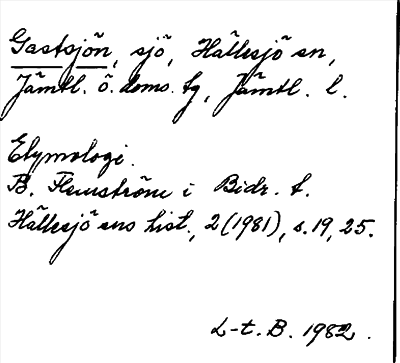 Gastsjön, sjö, Hällesjö sn,
Jämtl. ö. doms. tg, Jämtl. l.
Etymologi.
B. Flemström i Bidr. t.
Hällesjö sns hist., 2(1981), s. 19, 25.
L-t. B. 1982.